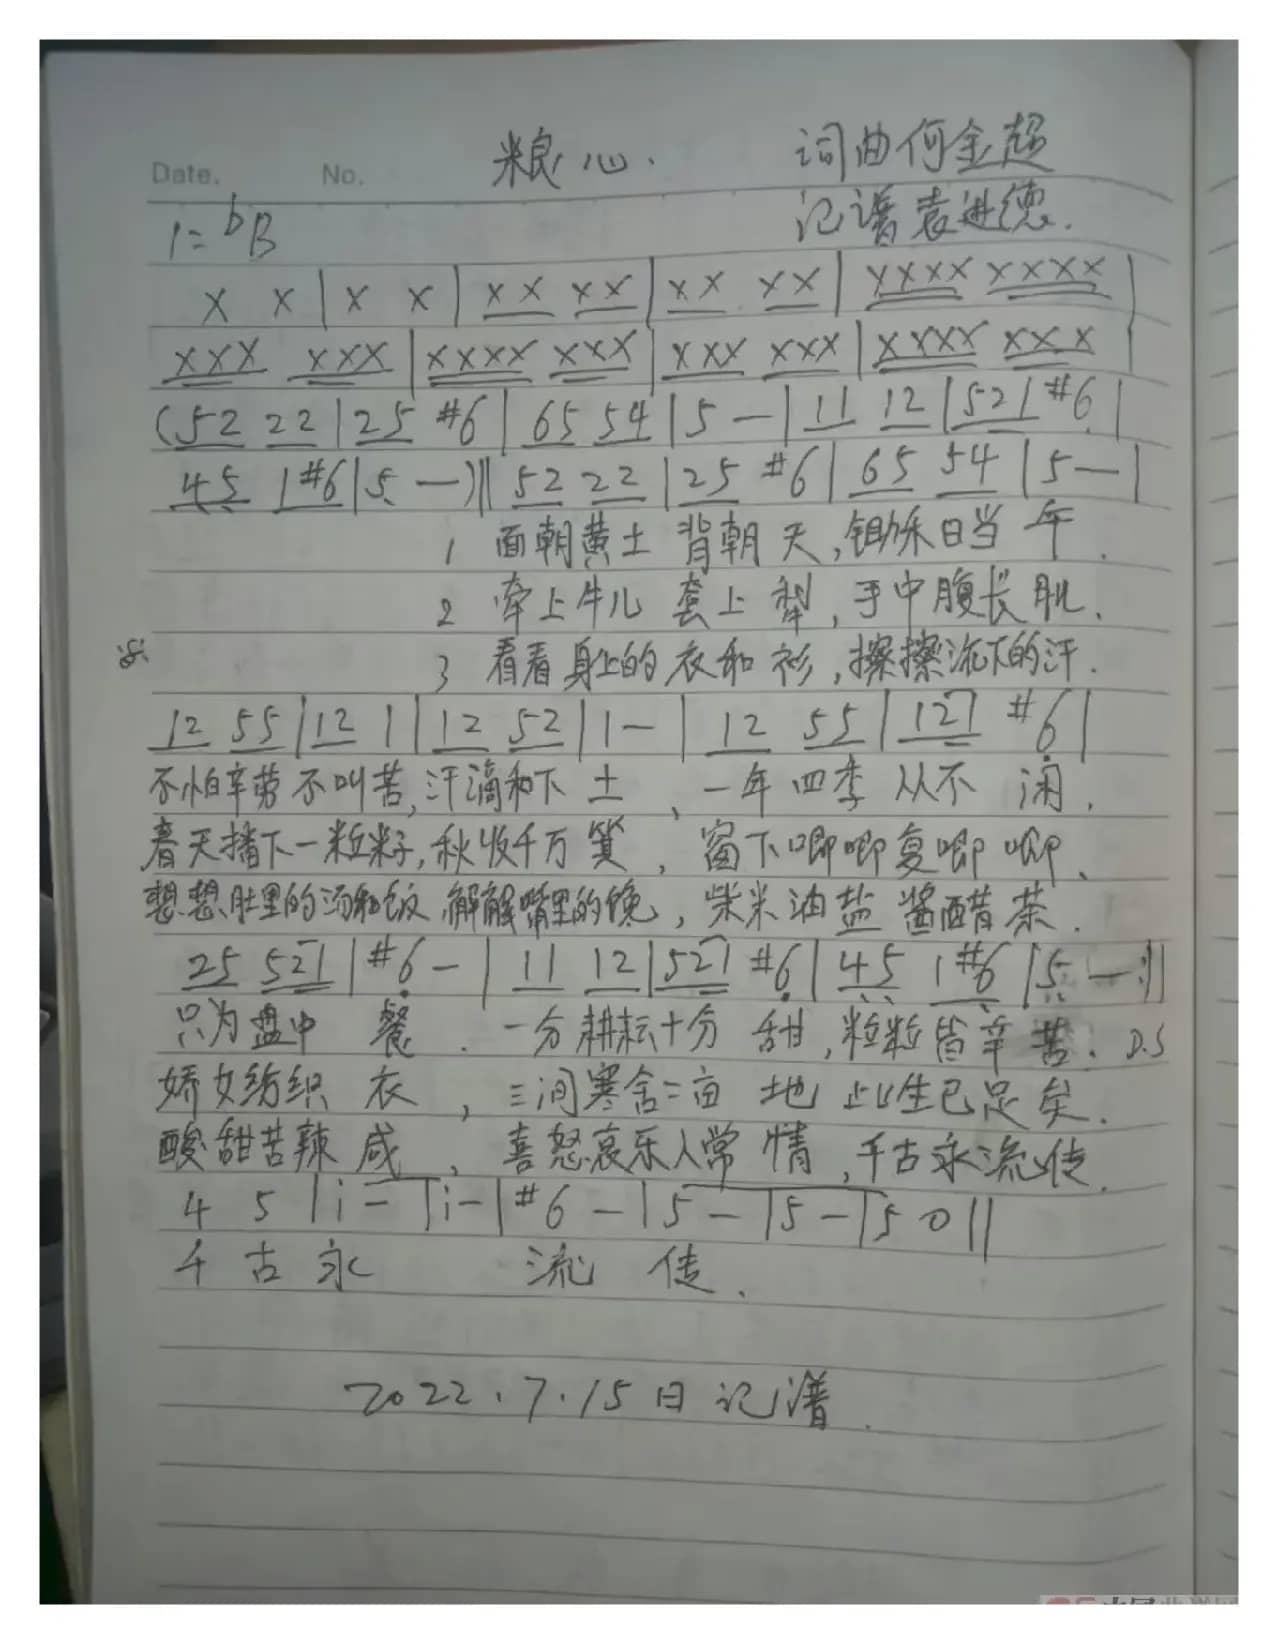 Date. No. 粮心. 词曲何金超
记谱袁进德.
1=bB
X X | X X | XX XX | XX XX | XXXX XXXX |
XXX XXX | XXXX XXX | XXX XXX | XXXX XXX |
(52 22 | 25 #6 | 65 54 | 5 — | 11 12 | 521 #6 |
45 1#6 | 5 —) || 52 22 | 25 #6 | 65 54 | 5 — |
1 面朝黄土 背朝天,锄禾日当午.
2 牵上牛儿 套上犁,手中腹长肌.
3 看看身上的衣和衫,擦擦流下的汗.
12 55 | 12 1 | 12 52 | 1 — | 12 55 | 121 #6 |
不怕辛劳不叫苦,汗滴和下土、一年四季从不闲.
春天播下一粒籽,秋收千万箕,窗下唧唧复唧唧、
想想肚里的汤和饭 解解嘴里的馋,柴米油盐酱醋茶.
25 521 | #6 — | 11 12 | 521 #6 | 45 1#6 | 5 — :||
只为盘中餐.一分耕耘十分甜,粒粒皆辛苦. D.S
娇女纺织衣,三间寒舍二亩地 此生已足矣.
酸甜苦辣咸,喜怒哀乐人常情,千古永流传.
4 5 | i — | i — | #6 — | 5 — | 5 — | 5 0 ||
千古永 流传.
2022.7.15日记谱.